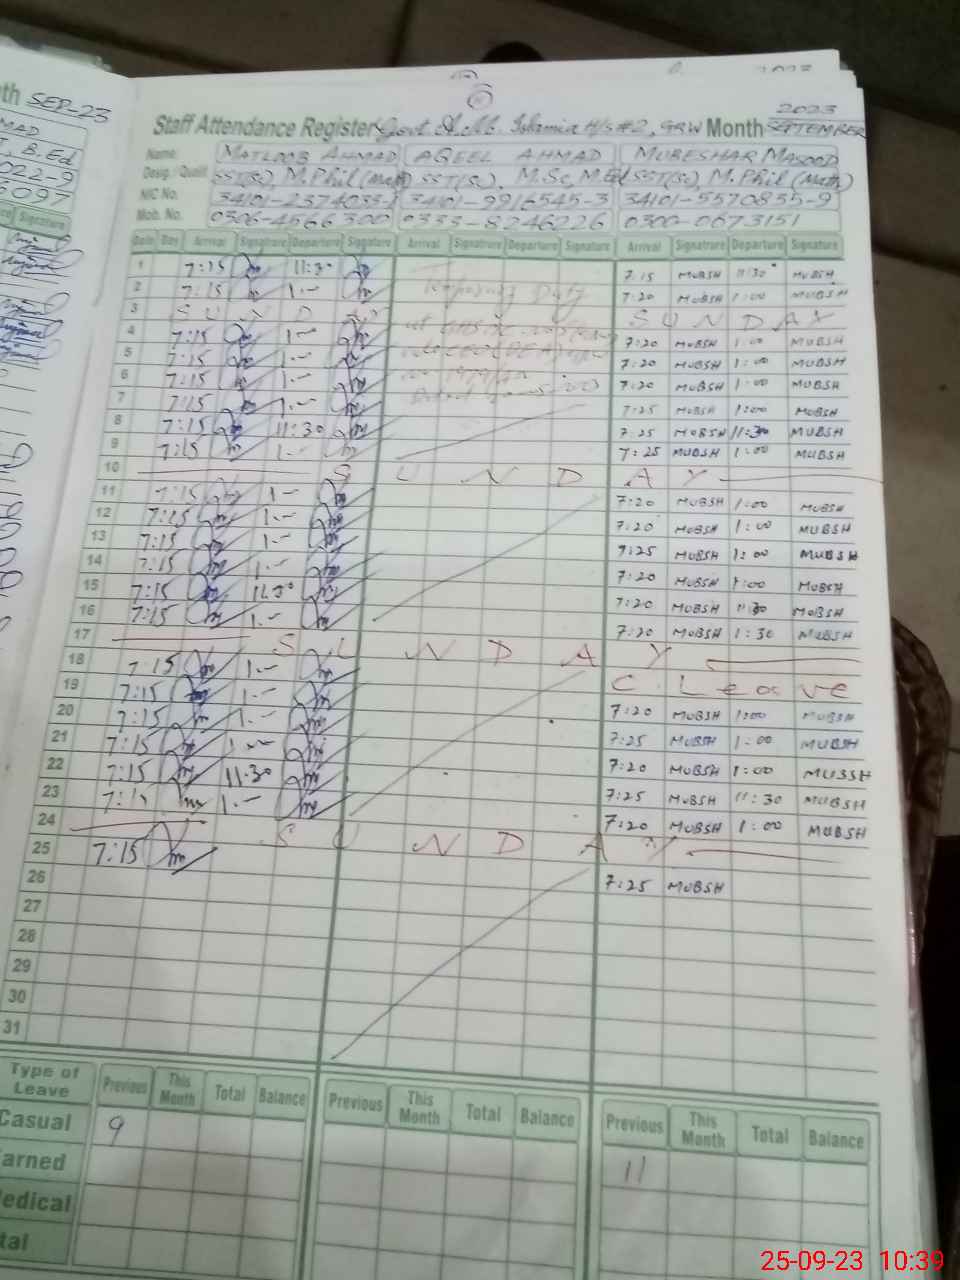 2023
Staff Attendance Register Govt. A.M. Islamia H/S #2, GRW Month SEPTEMBER
nth SEP-23
Name: MATLOOB AHMAD AQEEL AHMAD MUBESHAR MASOOD
MAD
Desig./Qualif. SST(Sc), M.Phil (Math) SST(Sc), M.Sc, M.Ed SST(Sc), M.Phil (Math)
B.Ed
NIC No. 34101-2374033- 34101-9916545-3 34101-5570835-9
022-9
Mob. No. 0306-4566300 0333-8246226 0300-0673151
5097
Signature
Date Day Arrival Signatrure Departure Signature Arrival Signatrure Departure Signature Arrival Signatrure Departure Signature
1 7:15 11:30 7:15 MUBSH 11:30 MUBSH
2 7:15 1.— Duty 7:20 MUBSH 1:00 MUBSH
3 SUNDAY SUNDAY
4 7:15 1.— 7:20 MUBSH 1:00 MUBSH
5 7:15 1.— 7:20 MUBSH 1:00 MUBSH
6 7:15 1.— 7:20 MUBSH 1:00 MUBSH
7 7:15 1.— 7:25 MUBSH 1:00 MUBSH
8 7:15 11:30 7:25 MUBSH 11:30 MUBSH
9 7:15 1.— 7:25 MUBSH 1:00 MUBSH
10 SUNDAY
11 7:15 1.— 7:20 MUBSH 1:00 MUBSH
12 7:15 1.— 7:20 MUBSH 1:00 MUBSH
13 7:15 1.— 7:25 MUBSH 1:00 MUBSH
14 7:15 1.— 7:20 MUBSH 1:00 MUBSH
15 7:15 11:30 7:20 MUBSH 11:30 MUBSH
16 7:15 1.— 7:20 MUBSH 1:30 MUBSH
17 SUNDAY
18 7:15 1.— C. Leave
19 7:15 1.— 7:20 MUBSH 1:00 MUBSH
20 7:15 1.— 7:25 MUBSH 1:00 MUBSH
21 7:15 1.— 7:20 MUBSH 1:00 MUBSH
22 7:15 11:30 7:25 MUBSH 11:30 MUBSH
23 7:15 1.— 7:20 MUBSH 1:00 MUBSH
24 SUNDAY
25 7:15 7:25 MUBSH
26
27
28
29
30
31
Type of Leave Previous This Month Total Balance Previous This Month Total Balance Previous This Month Total Balance
Casual 9 11
arned
edical
tal
25-09-23 10:39